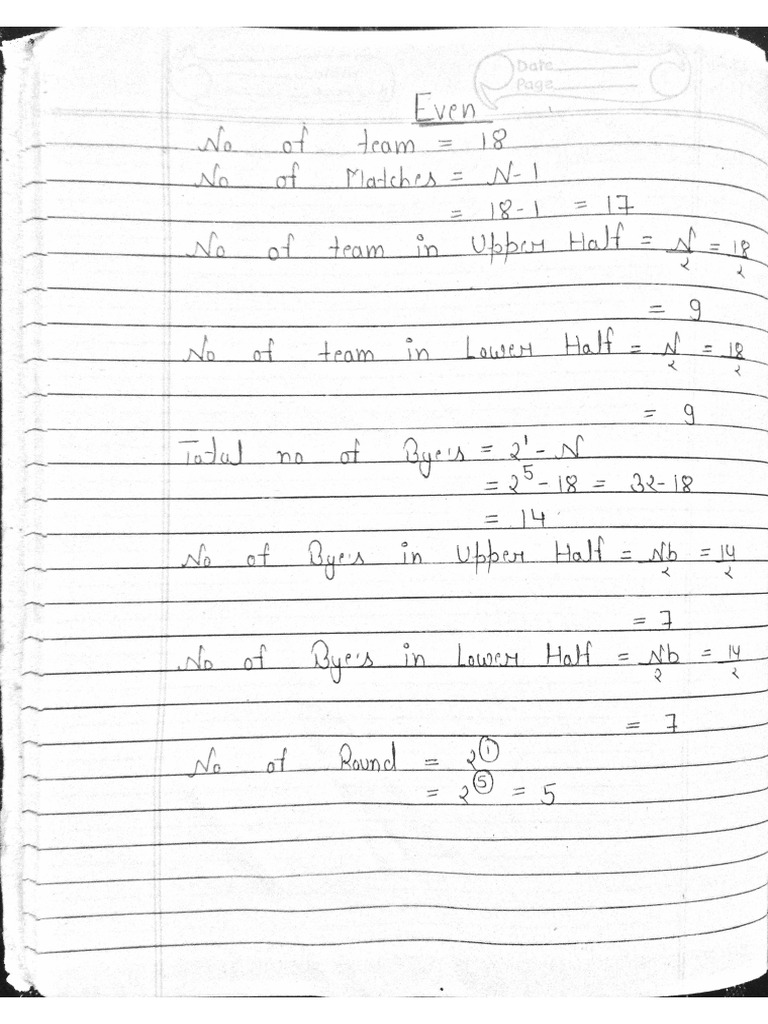 Date
Page
Even
No of team = 18
No of Matches = N-1
= 18-1 = 17
No of team in Upper Half = N/2 = 18/2
= 9
No of team in Lower Half = N/2 = 18/2
= 9
Total no of Bye's = 2¹ - N
= 2⁵ - 18 = 32-18
= 14
No of Bye's in Upper Half = Nb/2 = 14/2
= 7
No of Bye's in Lower Half = Nb/2 = 14/2
= 7
No of Round = 2①
= 2⑤ = 5